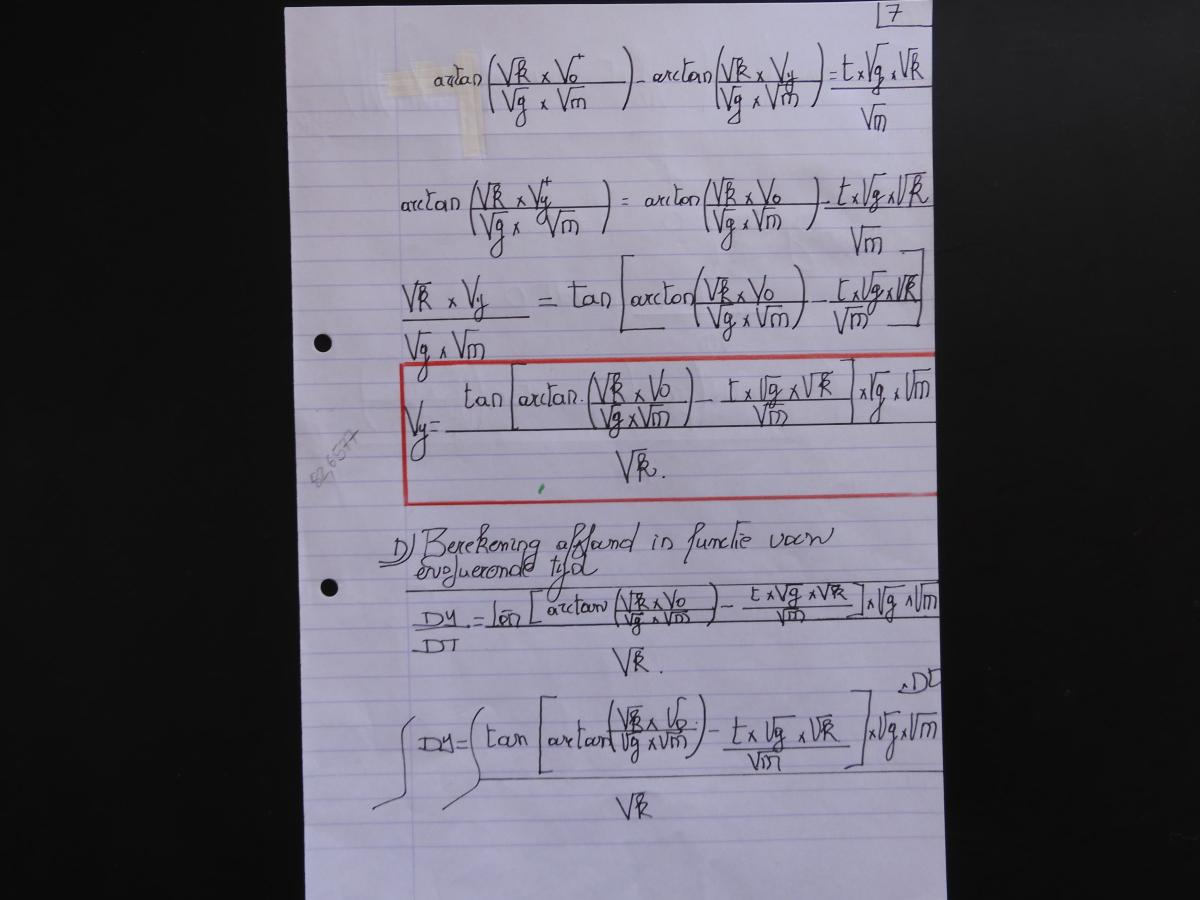 7
arctan(√k × V₀⁺ / √g × √m) - arctan(√k × Vy / √g × √m) = t×√g×√k / √m
arctan(√k × Vy⁺ / √g × √m) = arctan(√k × V0 / √g × √m) - t×√g×√k / √m
√k × Vy / √g × √m = tan[arctan(√k × V0 / √g × √m) - t×√g×√k / √m]
Vy = tan[arctan.(√k × V0 / √g × √m) - t × √g × √k / √m] × √g × √m / √k.
82,6577
D) Berekening afstand in functie van
evoluerende tijd
DY / DT = tan[arctan(√k × V0 / √g × √m) - t × √g × √k / √m] × √g × √m / √k.
∫ DY = ∫ tan[arctan(√k × V0 / √g × √m) - t × √g × √k / √m] × √g × √m / √k × DT